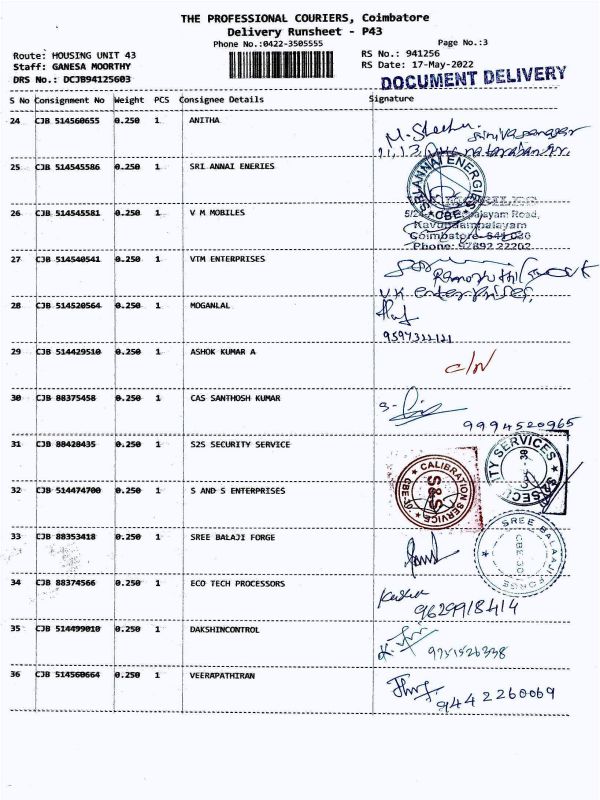 THE PROFESSIONAL COURIERS, Coimbatore
Delivery Runsheet - P43
Phone No.:0422-3505555
Page No.:3
Route: HOUSING UNIT 43
RS No.: 941256
Staff: GANESA MOORTHY
RS Date: 17-May-2022
DRS No.: DCJB94125603
DOCUMENT DELIVERY
S No Consignment No Weight PCS Consignee Details Signature
24 CJB 514560655 0.250 1 ANITHA
25 CJB 514545586 0.250 1 SRI ANNAI ENERIES
SRI ANNAI ENERGIES
CBE
26 CJB 514545581 0.250 1 V M MOBILES
Kavundampalayam
Coimbatore - 641 030
27 CJB 514540541 0.250 1 VTM ENTERPRISES
V.K. enterprises,
28 CJB 514520564 1 MOGANLAL
9597322121
29 CJB 514429510 0.250 1 ASHOK KUMAR A
30 CJB 88375458 0.250 1 CAS SANTHOSH KUMAR
9994520965
31 CJB 88428435 0.250 1 S2S SECURITY SERVICE
32 CJB 514474700 0.250 1 S AND S ENTERPRISES
CALIBRATION SERVICE
S&S
33 CJB 88353418 0.250 1 SREE BALAJI FORGE
SREE BALAAJI FORGE
CBE-30
34 CJB 88374566 0.250 1 ECO TECH PROCESSORS
9629918414
35 CJB 514499010 0.250 1 DAKSHINCONTROL
9751526338
36 CJB 514560664 0.250 1 VEERAPATHIRAN
9442260069